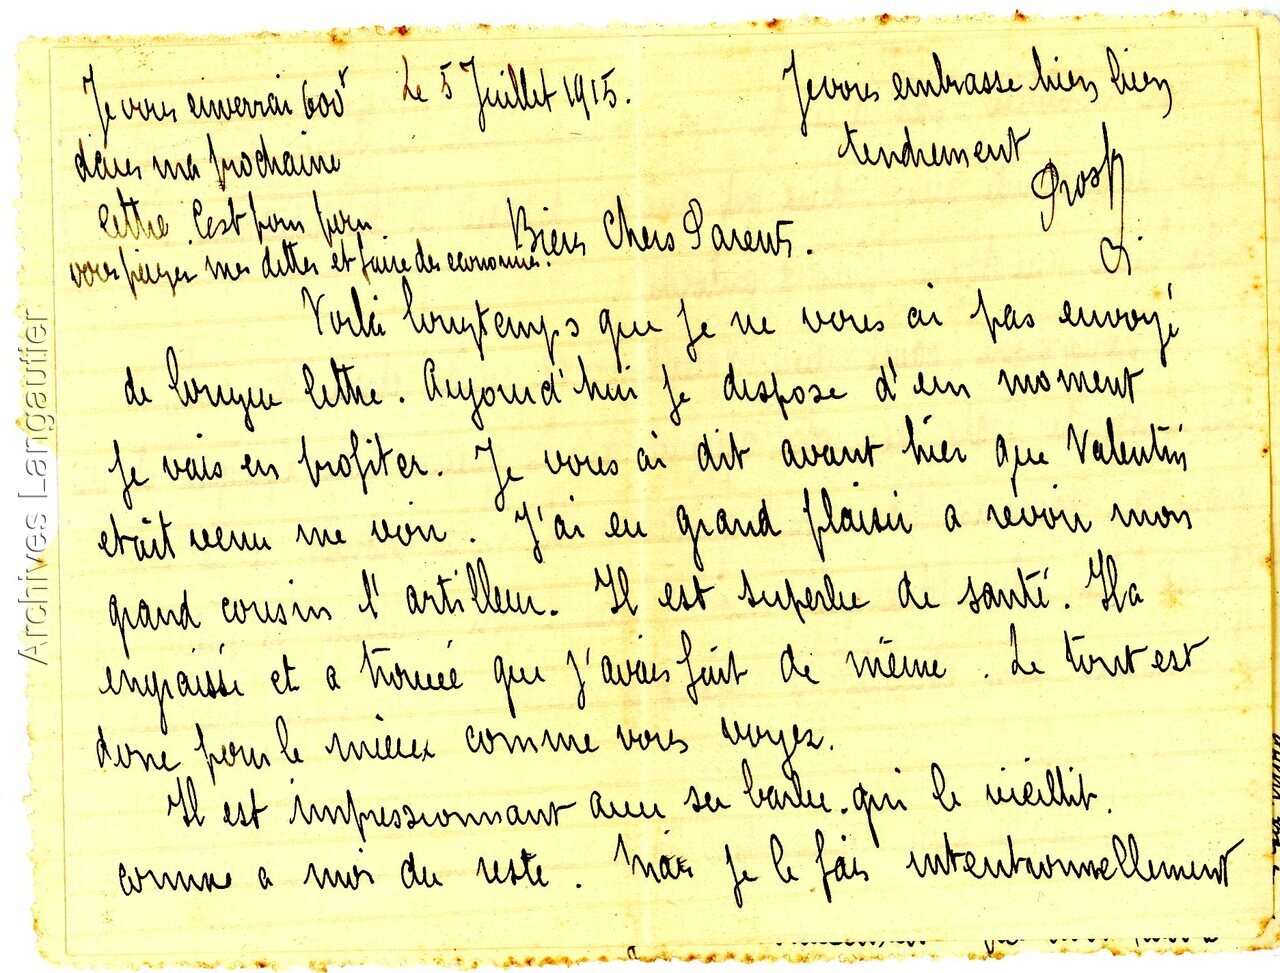 Le 5 Juillet 1915.
Je vous enverrai 600f
dans ma prochaine
lettre. C'est pour
vous payer mes dettes et faire des economies.
Je vous embrasse bien bien
tendrement
Prosp
Bien Chers Parents.
Voilà longtemps que je ne vous ai pas envoyé
de longue lettre. Aujourd'hui je dispose d'un moment
je vais en profiter. Je vous ai dit avant hier que Valentin
etait venu me voir. J'ai eu grand plaisir a revoir mon
grand cousin l'artilleur. Il est superbe de santé. Il a
engraissé et a trouvé que j'avais fait de même. Le tout est
donc pour le mieux comme vous voyez.
Il est impressionnant avec sa barbe qui le vieillit.
comme a moi du reste. Mais je le fais intentionnellement
Archives Langautier